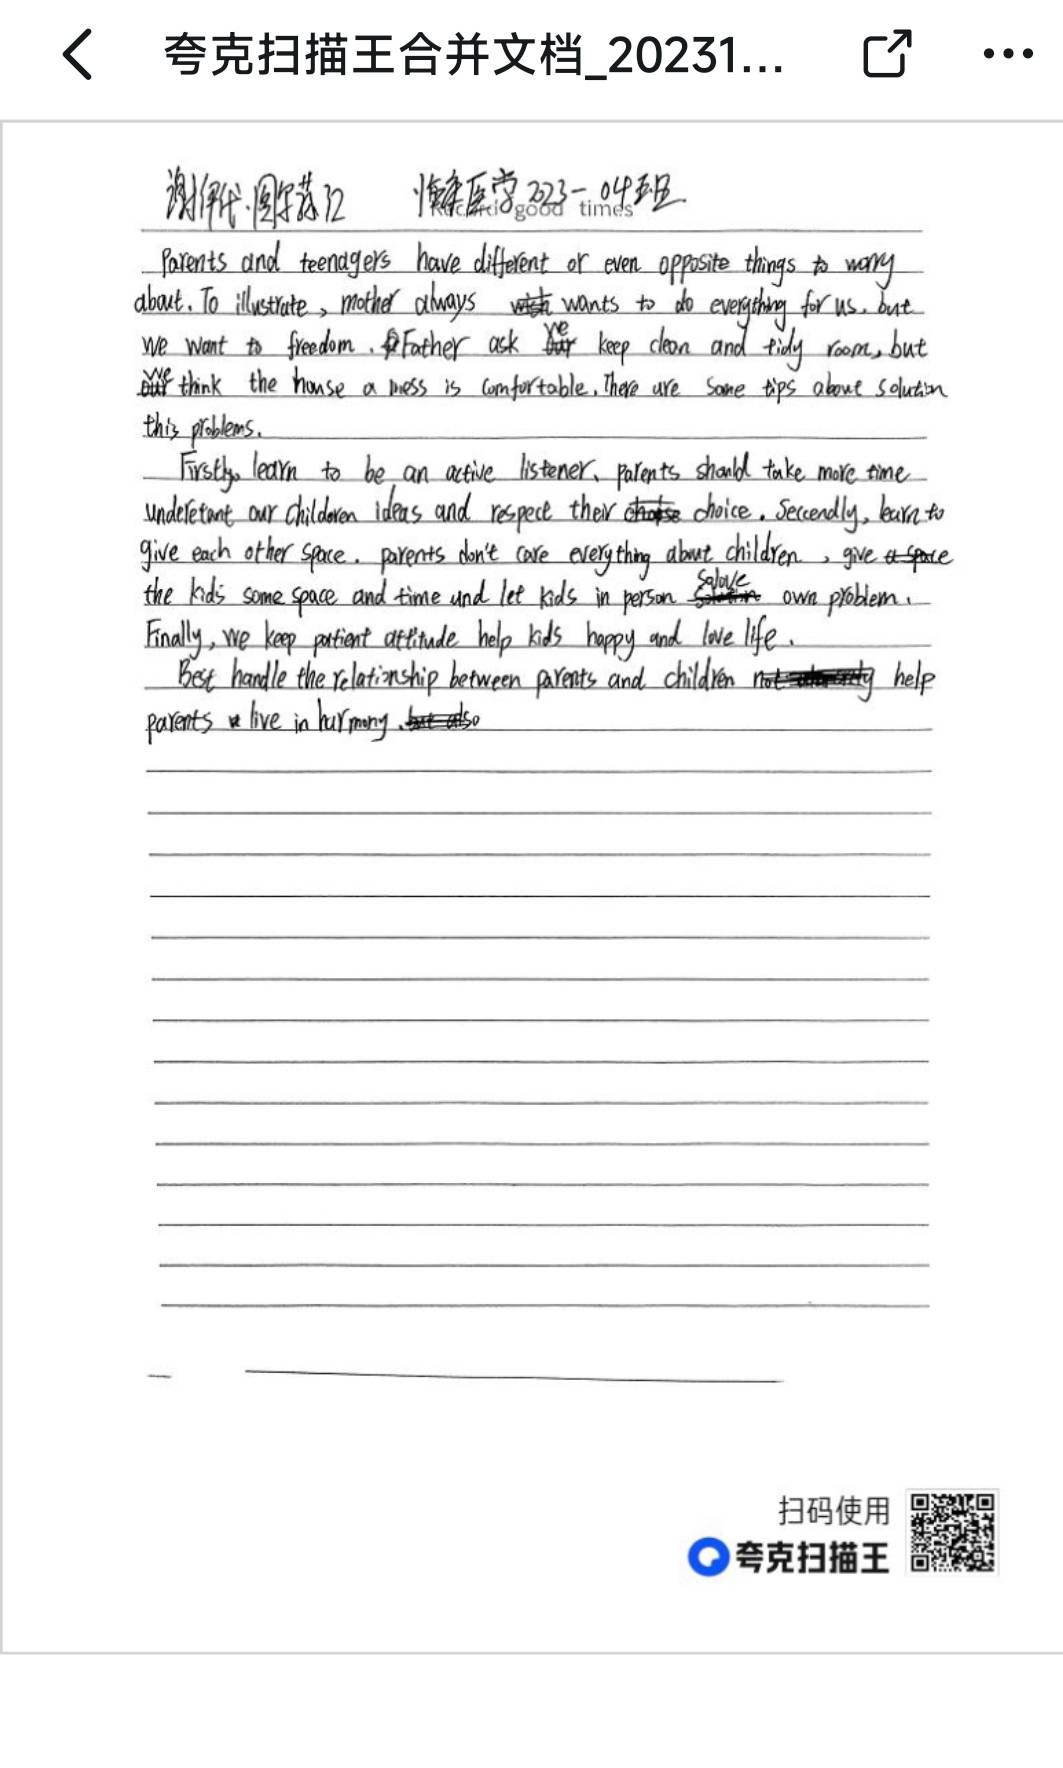 夸克扫描王合并文档_20231...
2023-04班
Record good times
Parents and teenagers have different or even opposite things to worry
about. To illustrate, mother always wants to do everything for us. but
we want to freedom. Father ask we keep clean and tidy room, but
we think the house a mess is comfortable. There are some tips about solution
this problems.
Firstly, learn to be an active listener. parents should take more time
undersetant our childoren ideas and respect their choice. Seccendly, learn to
give each other space. parents don't care everything about children, give
the kids some space and time und let kids in person solove own problem.
Finally, we keep patient attitude help kids happy and love life.
Best handle the relationship between parents and children help
parents live in harmony.
扫码使用
夸克扫描王